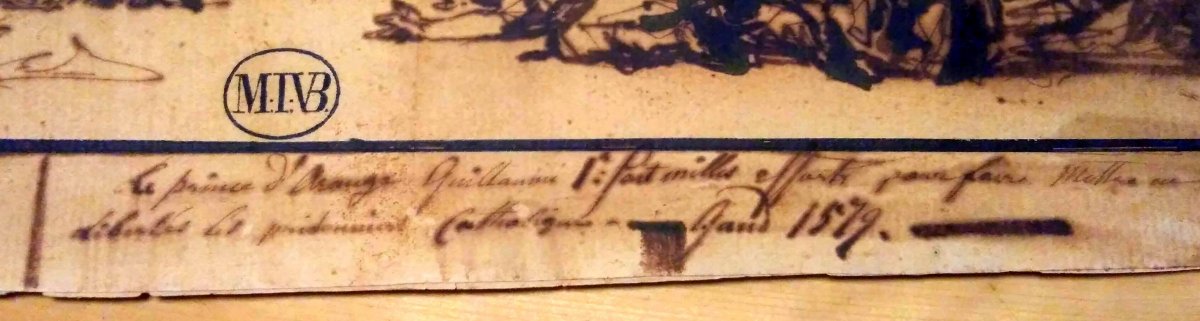 M.I.VB.
Le prince d'Orange Guillaume 1er fait milles efforts pour faire mettre en
libertés les prisonniers Catholiques a Gand 1579.